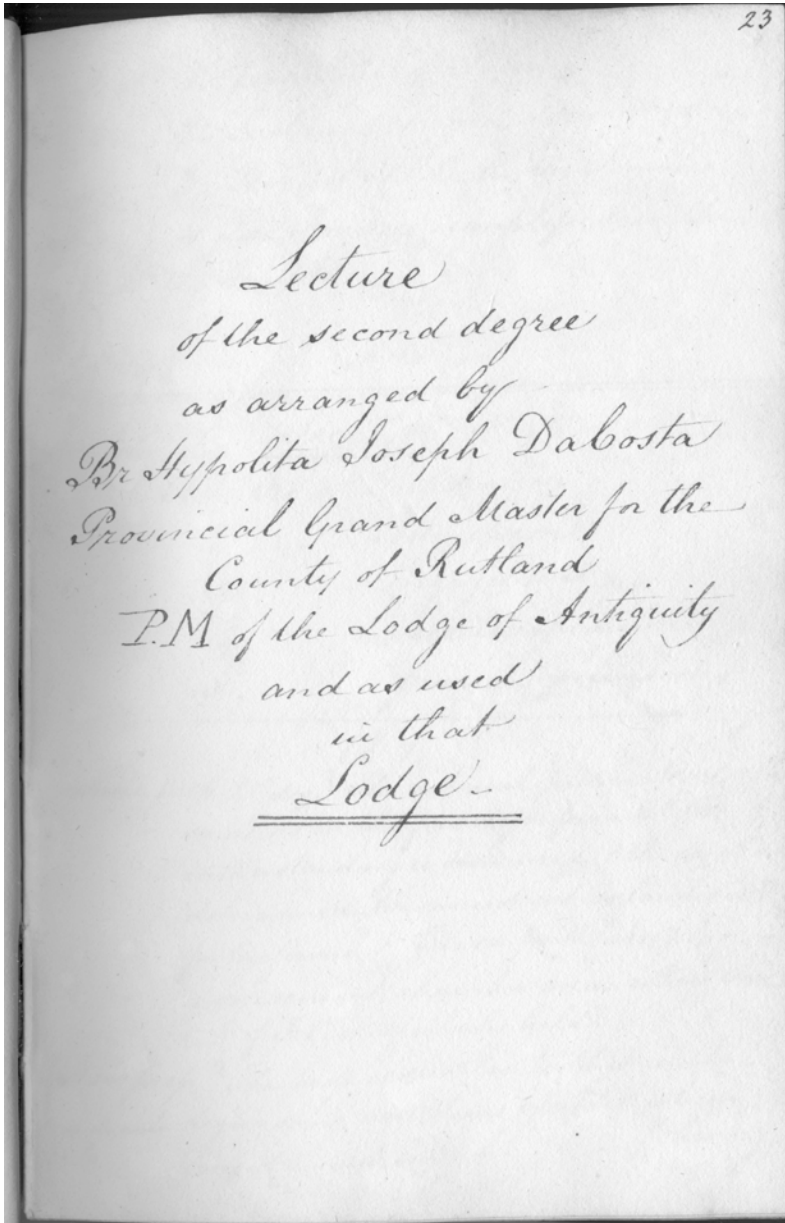 23
Lecture
of the second degree
as arranged by
Br Hypolita Joseph DaCosta
Provincial Grand Master for the
County of Rutland
P.M of the Lodge of Antiquity
and as used
in that
Lodge-